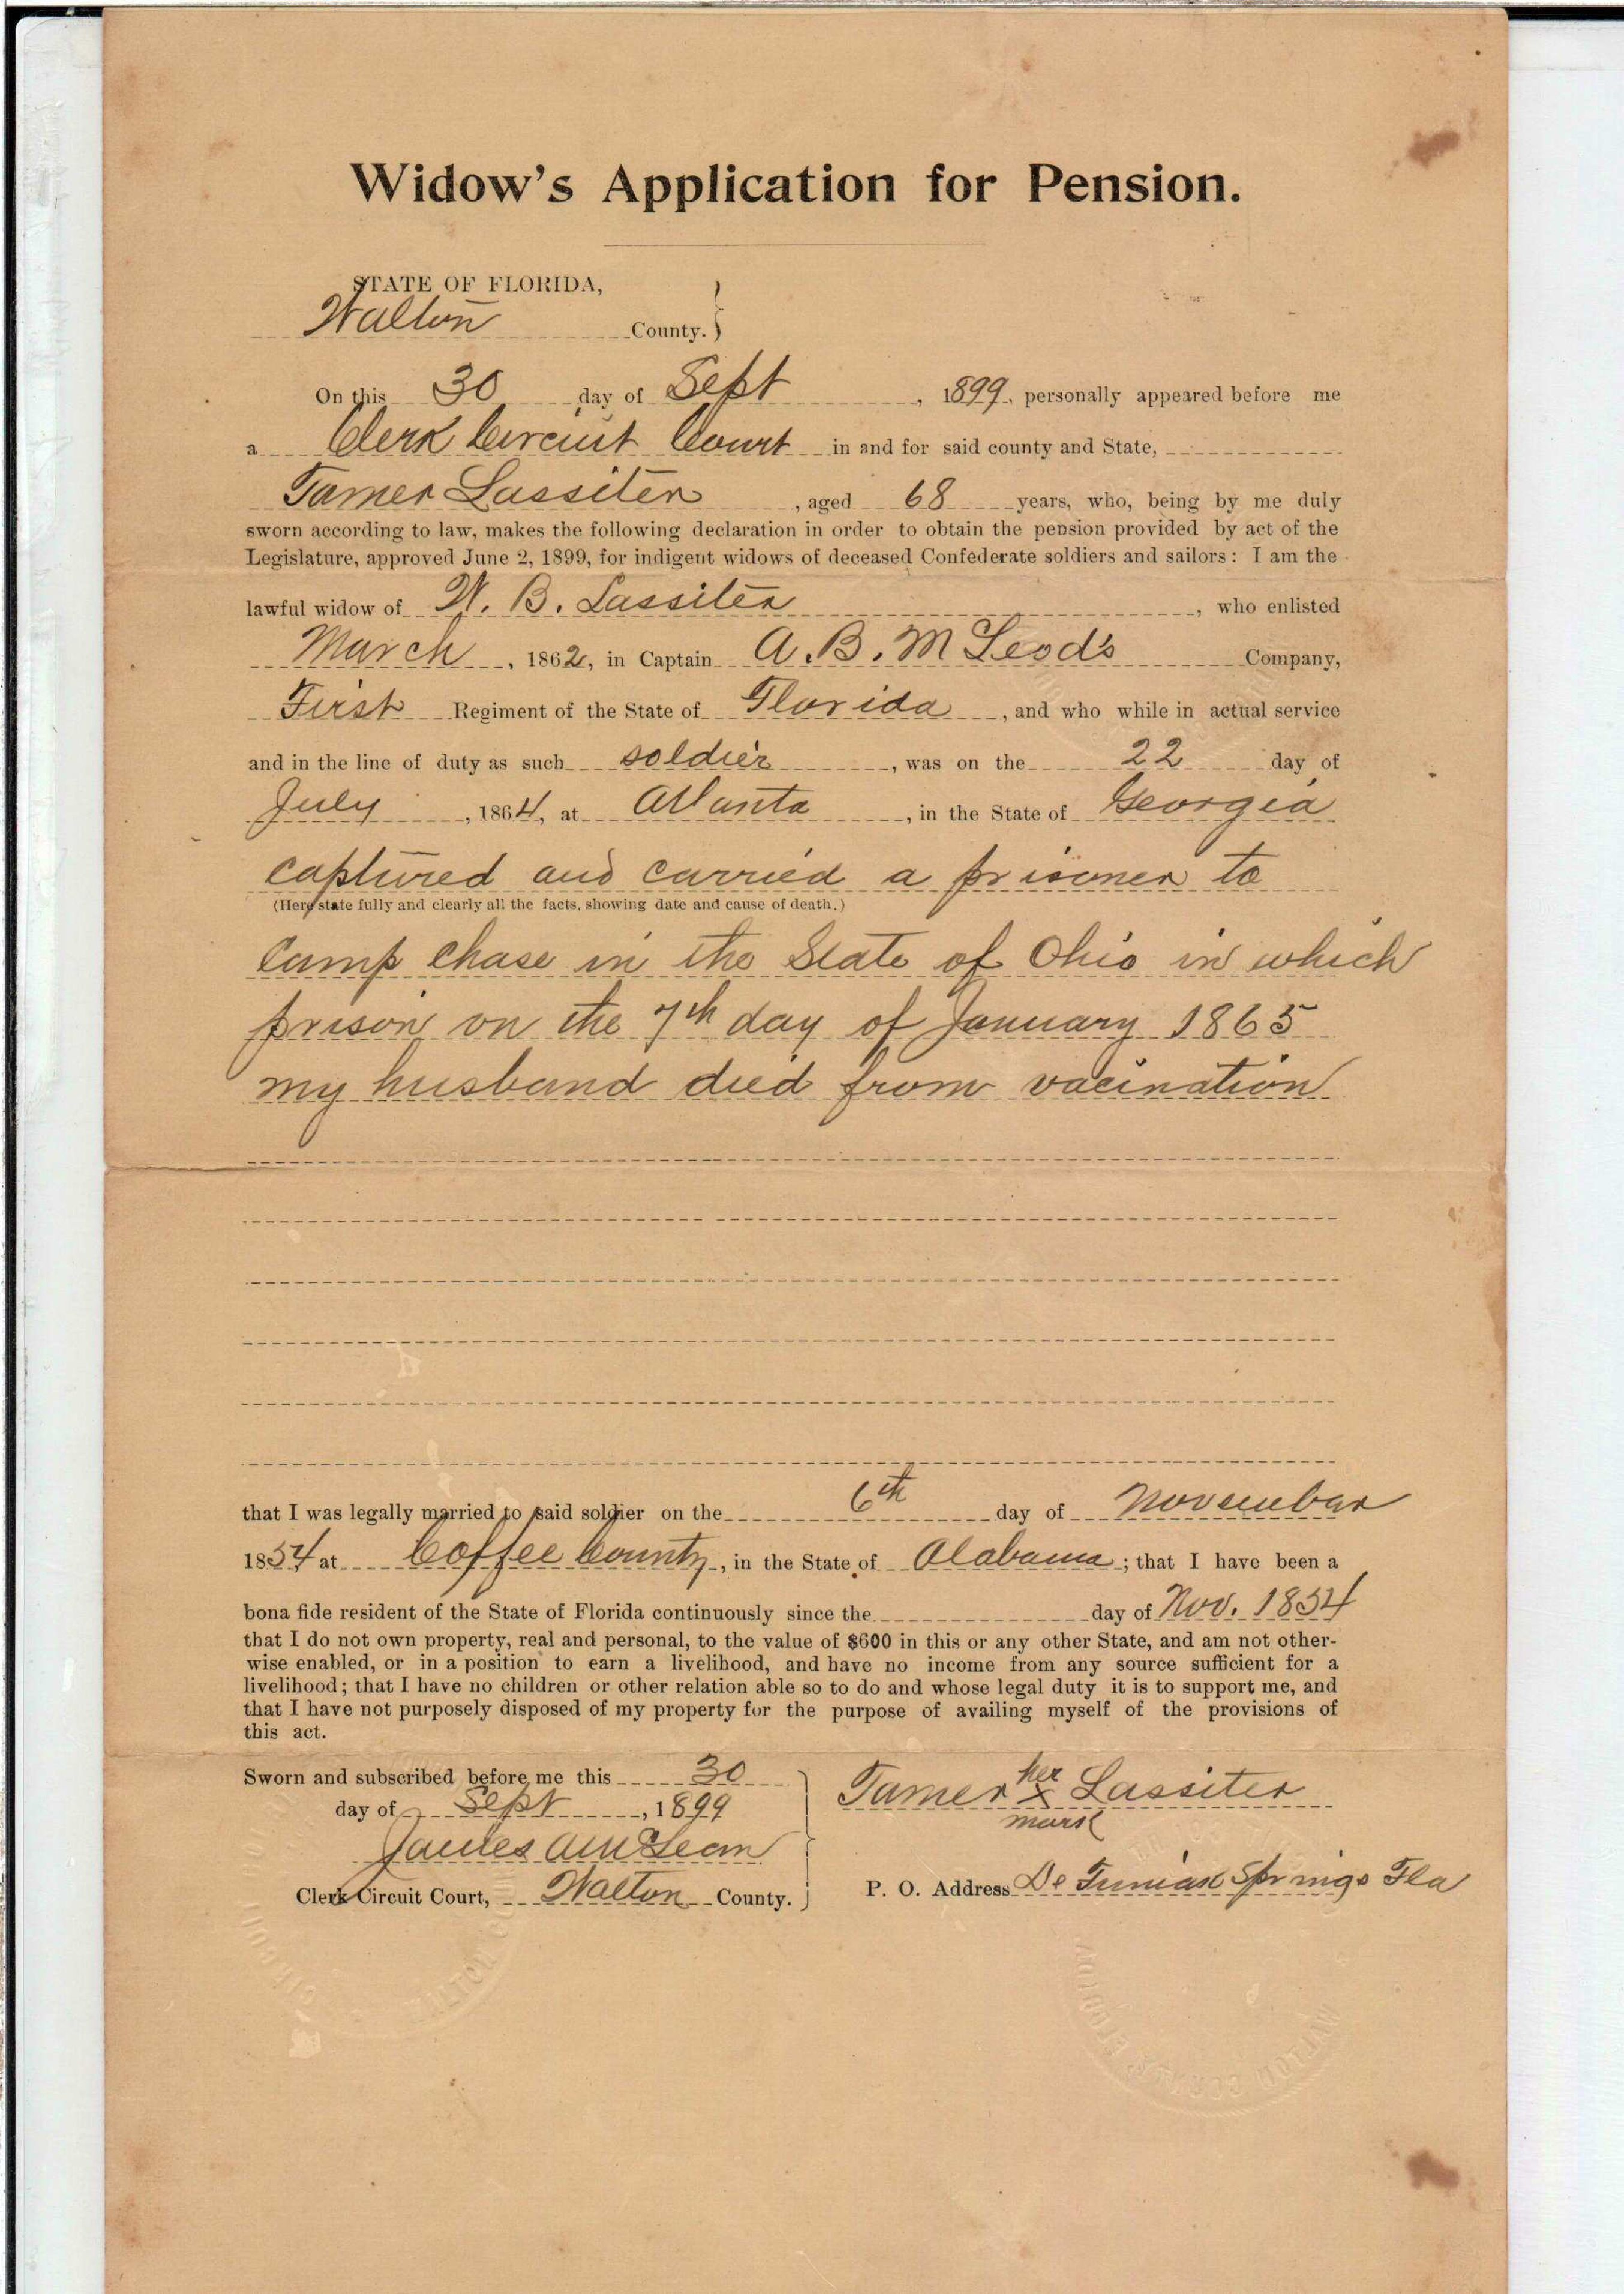 Widow's Application for Pension.
STATE OF FLORIDA,
Walton County. }
On this 30 day of Sept, 1899, personally appeared before me
a Clerk Circuit Court in and for said county and State,
Tamer Lassiter, aged 68 years, who, being by me duly
sworn according to law, makes the following declaration in order to obtain the pension provided by act of the
Legislature, approved June 2, 1899, for indigent widows of deceased Confederate soldiers and sailors: I am the
lawful widow of W. B. Lassiter, who enlisted
March, 1862, in Captain A. B. McLeod's Company,
First Regiment of the State of Florida, and who while in actual service
and in the line of duty as such soldier, was on the 22 day of
July, 1864, at Atlanta, in the State of Georgia
captured and carried a prisoner to
(Here state fully and clearly all the facts, showing date and cause of death.)
Camp Chase in the State of Ohio in which
prison on the 7th day of January 1865
my husband died from vacination
that I was legally married to said soldier on the 6th day of November
1854 at Coffee County, in the State of Alabama; that I have been a
bona fide resident of the State of Florida continuously since the day of Nov. 1854
that I do not own property, real and personal, to the value of $600 in this or any other State, and am not other-
wise enabled, or in a position to earn a livelihood, and have no income from any source sufficient for a
livelihood; that I have no children or other relation able so to do and whose legal duty it is to support me, and
that I have not purposely disposed of my property for the purpose of availing myself of the provisions of
this act.
Sworn and subscribed before me this 30
day of Sept, 1899
James A McLean
Clerk Circuit Court, Walton County.
Tamer her x Lassiter
mark
P. O. Address De Funiak Springs Fla